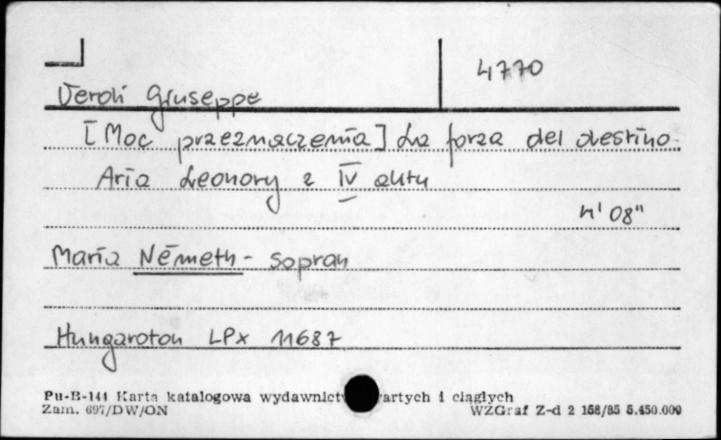 4770
Verdi Giuseppe
[Moc przeznaczenia] La forza del destino.
Aria Leonory z IV aktu
4' 08"
Maria Németh - sopran
Hungaroton LPX 11687
Pu-B-144 Karta katalogowa wydawnictw artych i ciągłych
Zam. 697/DW/ON WZGraf Z-d 2 158/85 5.450.000